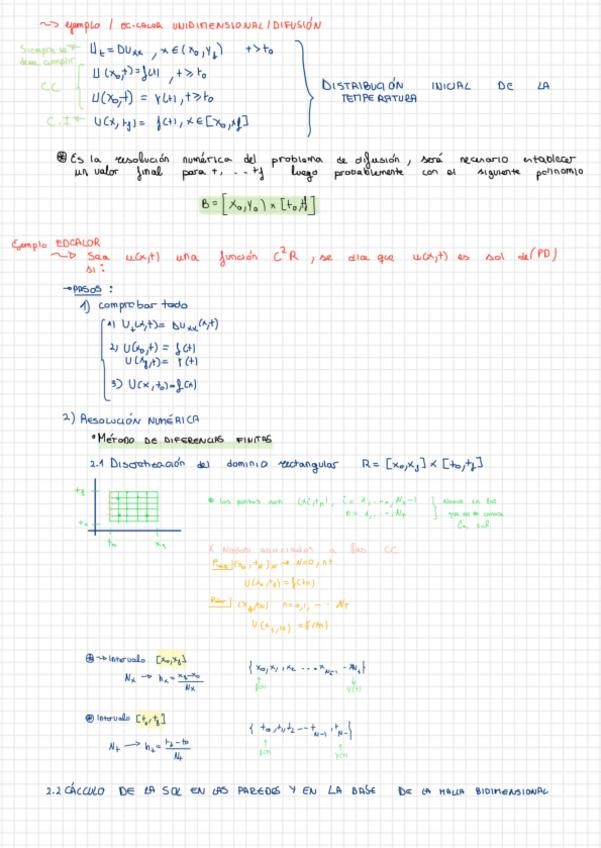 ~> ejemplo / EC-CALOR UNIDIMENSIONAL/DIFUSIÓN
Siempre se debe cumplir
Ut = DUxx , x ∈ (x0, yf) t > t0
CC
U(x0,t) = f(t) , t > t0
U(x0,t) = γ(t), t > t0
C.I
U(x,t0) = f(t), x ∈ [x0,xf]
DISTRIBUCIÓN INICIAL DE LA
TEMPERATURA
Es la resolución numérica del problema de difusión, será necesario establecer
un valor final para t, ... tf luego probablemente con el siguiente polinomio
B = [x0, y0) x [t0,tf]
Ejemplo EDCALOR
~> Sea u(x,t) una función C²R, se dice que u(x,t) es sol de (PD)
si:
→ PASOS :
1) comprobar todo
1) Ut(x,t) = DUxx(x,t)
2) U(x0,t) = f(t)
U(xf,t) = γ(t)
3) U(x,t0) = f(x)
2) RESOLUCIÓN NUMÉRICA
• MÉTODO DE DIFERENCIAS FINITAS
2.1 Discretización del dominio rectangular R = [x0,xf] x [t0,tf]
tf
to
to
xf
Los puntos son (xi, tn), i = 1, ..., Nx-1
n = 1, ..., Nt
Nodos en los
que no se conoce
la sol
X Nodos asociados a las CC
U(x0,tn) = f(tn)
n=0,1, ... NT
U(xf,tn) = f(tn)
→ Intervalo [x0,xf]
{x0, x1, x2 ... xNx-1 - xNx}
Nx → hx = xf-x0 / Nx
Intervalo [t0,tf]
{t0, t1, t2 ... tN-1, tN}
Nt → ht = tf-t0 / Nt
2.2 CÁLCULO DE LA SOL EN LAS PAREDES Y EN LA BASE DE LA MALLA BIDIMENSIONAL